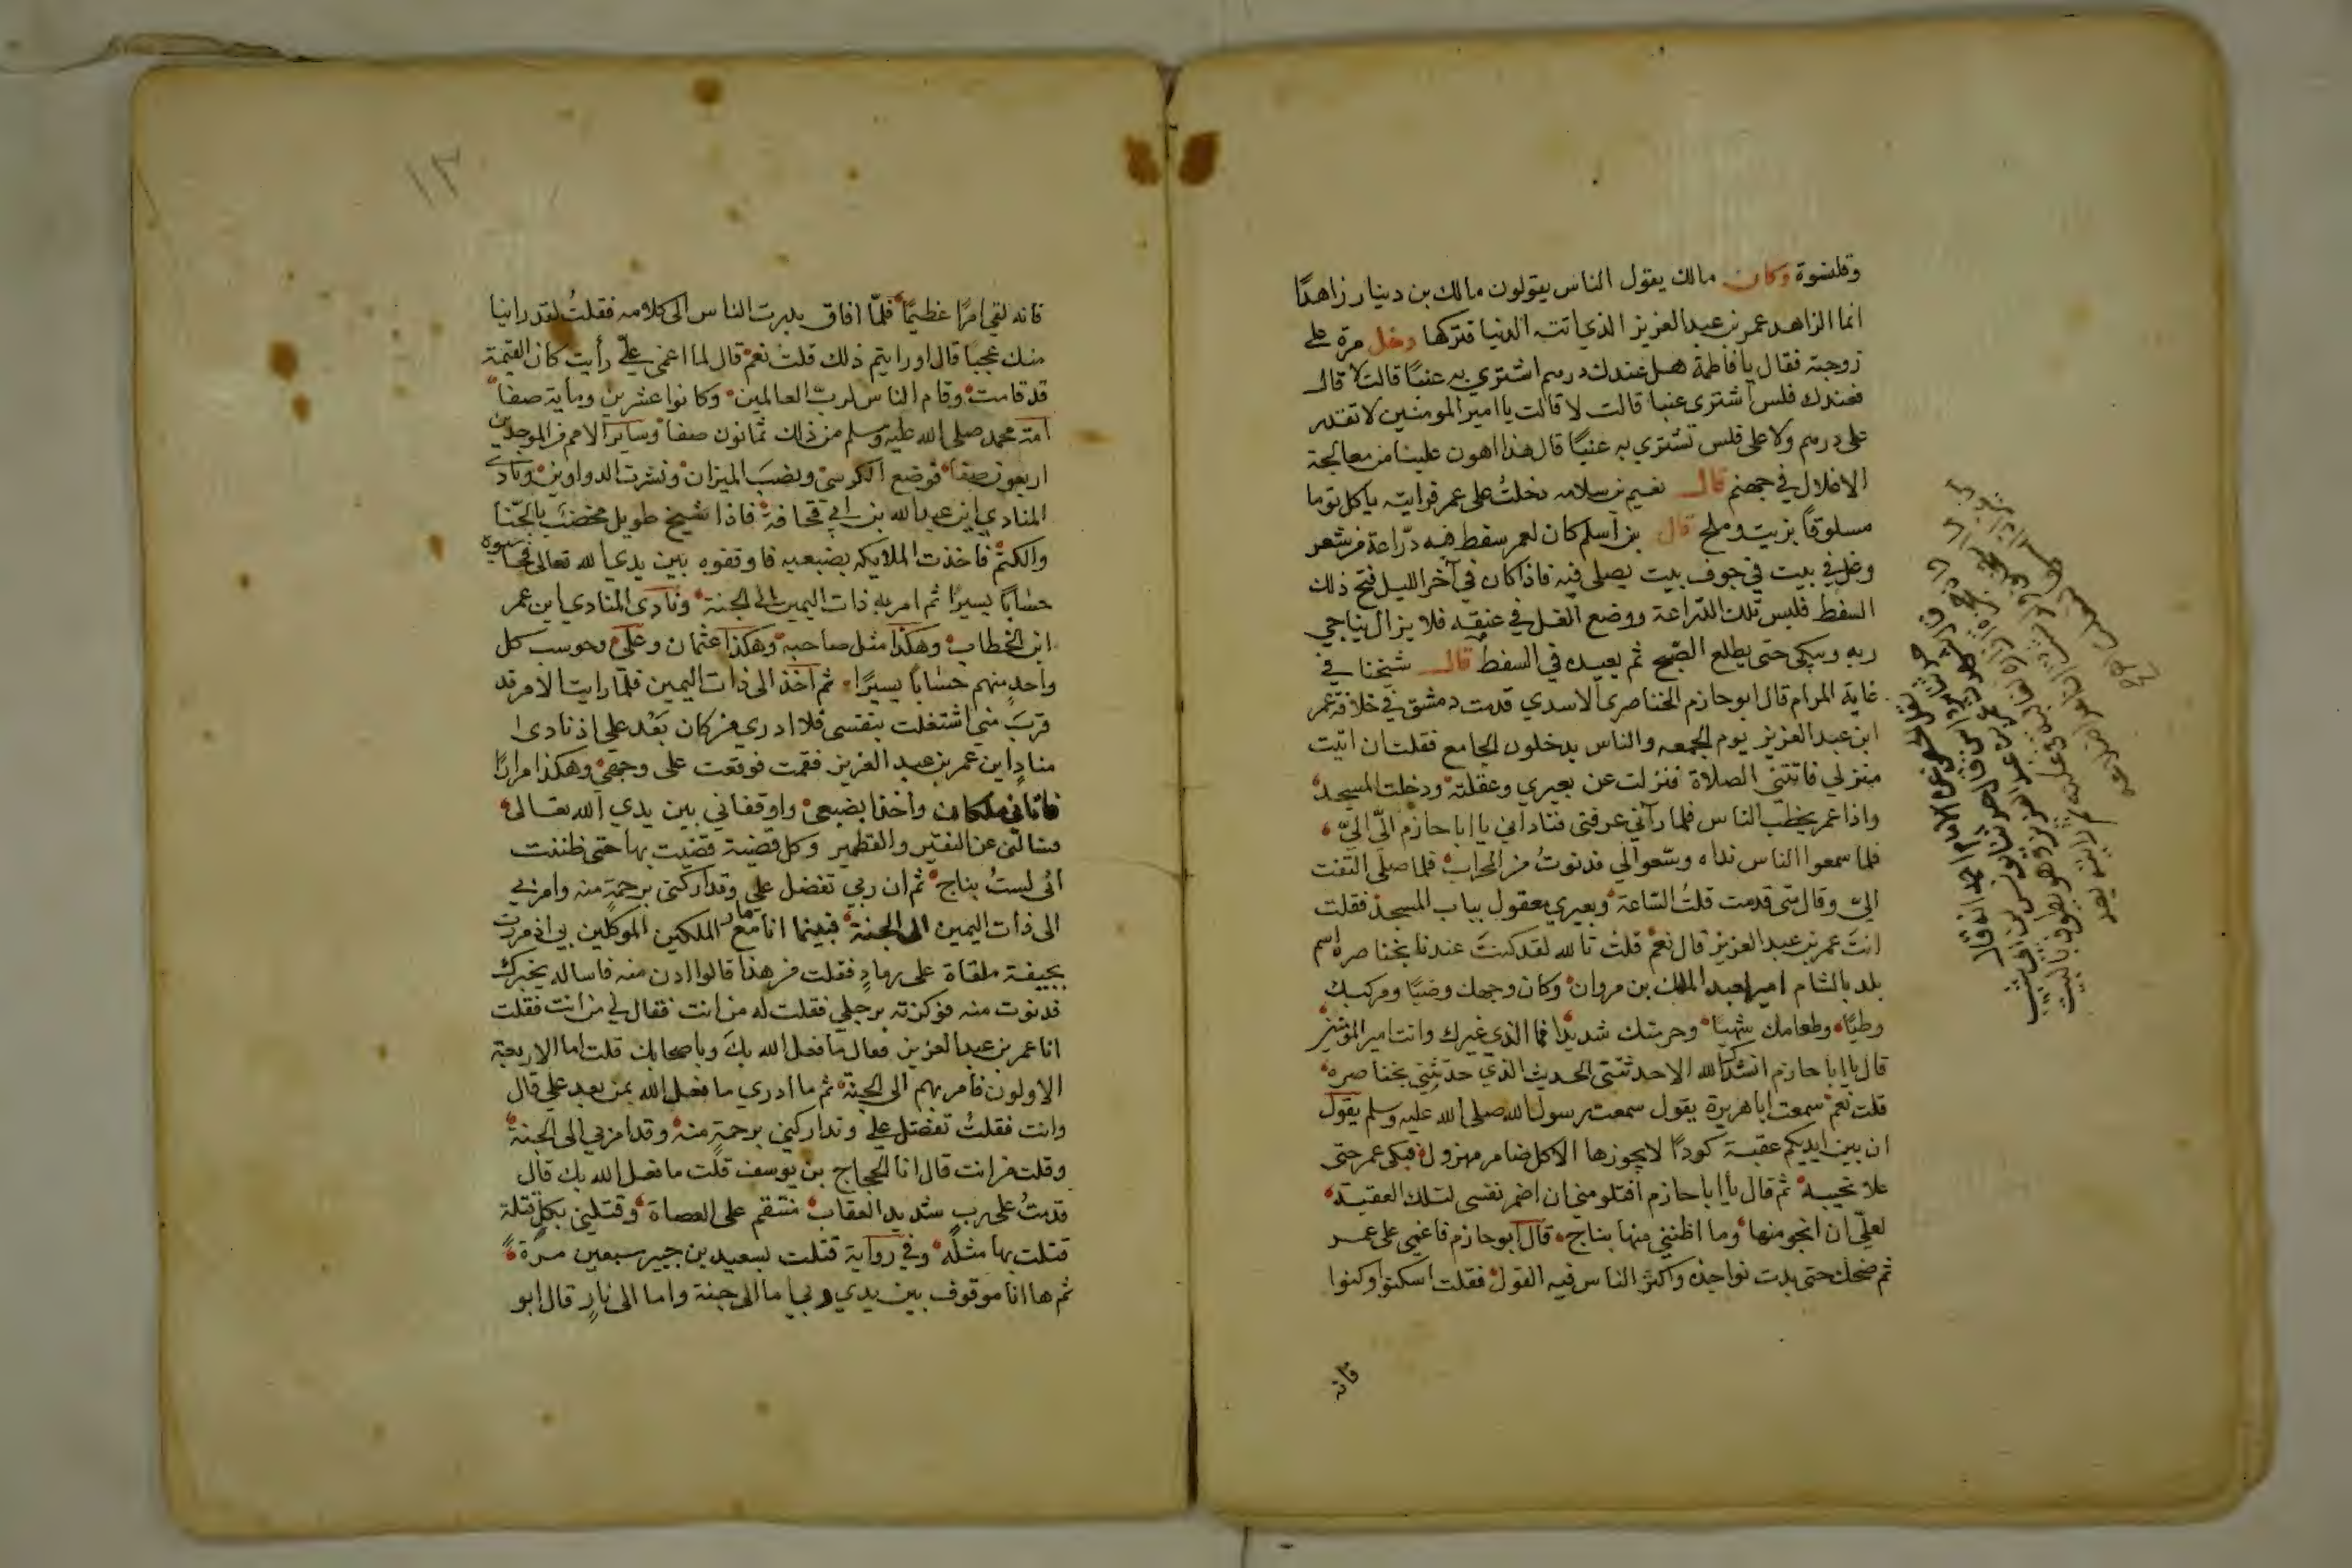 وقلنسوة وكان مالك يقول الناس يقولون مالك بن دينار زاهدًا
انما الزاهد عمر بن عبد العزيز الذي اتته الدنيا فتركها دخل مرة على
زوجته فقال يا فاطمة هل عندك درهم اشتري به عنبًا قالت لا قال
فعندك فلس اشتري عنبا قالت لا قالت يا امير المومنين لا تقدر
على درهم ولا على فلس تشتري به عنبًا قال هذا اهون علينا من معالجة
الاغلال في جهنم قال نعيم بن سلامه دخلتُ على عمر فرايته ياكل ثوما
مسلوقًا بزيت وملح قال بن اسلم كان لعمر سفط فيه درّاعة من شعر
وغل في بيت في جوف بيت يصلي فيه فاذا كان في آخر الليل فتح ذلك
السفط فلبس تلك الدراعة ووضع الغل في عنقه فلا يزال يناجي
ربه ويبكي حتى يطلع الصبح ثم يعيده في السفط قال شيخنا في
غاية المرام قال ابو حازم الخناصري الاسدي قدمت دمشق في خلافة عمر
ابن عبد العزيز يوم الجمعه والناس يدخلون الجامع فقلت ان اتيت
منزلي فاتتني الصلاة فنزلت عن بعيري وعقلته ودخلت المسجد
واذا عمر يخطب الناس فلما رآني عرفني فناداني يا ابا حازم اليّ اليّ
فلما سمعوا الناس نداه وسّعوا لي فدنوتُ من المحراب فلما صلى التفت
اليّ وقال متى قدمت قلتُ الساعة وبعيري معقول بباب المسجد فقلت
انتَ عمر بن عبد العزيز قال نعم قلتُ تالله لقد كنتَ عندنا بخناصره اسم
بلد بالشام امير لعبد الملك بن مروان وكان وجهك وضيًا ومركبك
وطيًا وطعامك شهيًا وحرسك شديدًا فما الذي غيرك وانت امير المومنين
قال يا ابا حازم انشدك الله الا حدثتني الحديث الذي حدثتني بخناصره
قلت نعم سمعت ابا هريرة يقول سمعت رسول الله صلى الله عليه وسلم يقول
ان بين ايديكم عقبة كودًا لا يجوزها الا كل ضامر مهزول فبكى عمر حتى
علا نحيبه ثم قال يا ابا حازم افتلومني ان اضمر نفسي لتلك العقبة
لعلّي ان انجو منها وما اظنني منها بناج قال ابو حازم فاغمي على عمر
ثم ضحك حتى بدت نواجذه واكثر الناس فيه القول فقلت اسكتوا وكفوا
فانه
١٣
فانه لقي امرًا عظيمًا فلمّا افاق بدرت الناس الى كلامه فقلتُ لقد راينا
منك عجبا قال او رايتم ذلك قلتُ نعم قال لما اغمي عليّ رأيت كان القيمة
قد قامت وقام الناس لربّ العالمين وكانوا عشرين وماية صفا
امة محمد صلى الله عليه وسلم من ذلك ثمانون صفا وساير الامم من الموحدين
اربعون صفا فوضع الكرسيّ ونصبَ الميزان ونشرت الدواوين ونادى
المنادي اين عبد الله بن ابي قحافة فاذا شيخ طويل مخضب بالحنّا
والكتم فاخذت الملايكه بضبعيه فاوقفوه بين يدي الله تعالى فحاسبوه
حسابًا يسيرًا ثم امر به ذات اليمين الى الجنة ونادى المنادي اين عمر
ابن الخطاب وهكذا مثل صاحبه وهكذا عثمان وعلي وحوسب كل
واحد منهم حسابًا يسيرًا ثم اخذ الى ذات اليمين فلمّا رايت الامر قد
قربَ مني اشتغلت بنفسي فلا ادري من كان بَعْد علي اذ نادى
منادٍ اين عمر بن عبد العزيز فقمت فوقعت على وجهي وهكذا مرارًا
فاتاني ملكان واخذا بضبعي واوقفاني بين يدي الله تعالى
فسالني عن النقير والقطمير وكل قضية قضيت بها حتى ظننت
اني لستُ بناج ثم ان ربي تفضل علي وتداركني برحمة منه وامر بي
الى ذات اليمين الى الجنة فبينما انا مار مع الملكين الموكلين بي اذ مررت
بجيفة ملقاة على رمادٍ فقلت من هذا قالوا ادن منه فاساله يخبرك
فدنوت منه فوكزته برجلي فقلت له من انت فقال لي من انت فقلت
انا عمر بن عبد العزيز فقال ما فعل الله بكَ وباصحابك قلت اما الاربعة
الاولون فامر بهم الى الجنة ثم ما ادري ما فعل الله بمن بعد علي قال
وانت فقلتُ تفضل علي وتداركني برحمةٍ منه وقد امر بي الى الجنة
وقلت من انت قال انا الحجاج بن يوسف قلت ما فعل الله بك قال
قدمتُ على ربٍ شديد العقاب منتقم على العصاة وقتلني بكل قتلة
قتلت بها مثله وفي رواية قتلت بسعيد بن جبير سبعين مرة
ثم ها انا موقوف بين يدي ربي اما الى جنة واما الى نارٍ قال ابو